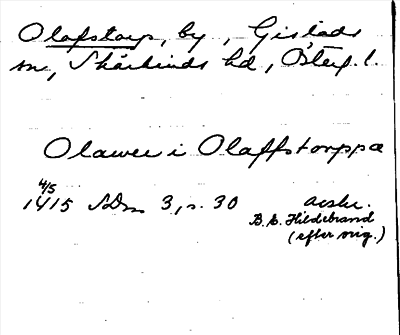 Olafstorp, by, Gistads
sn, Skärkinds hd, Österg. l.
Olawee i Olaffstorppa
4/5
1415 SDns 3, s. 30 avskr.
B. E. Hildebrand
(efter orig.)